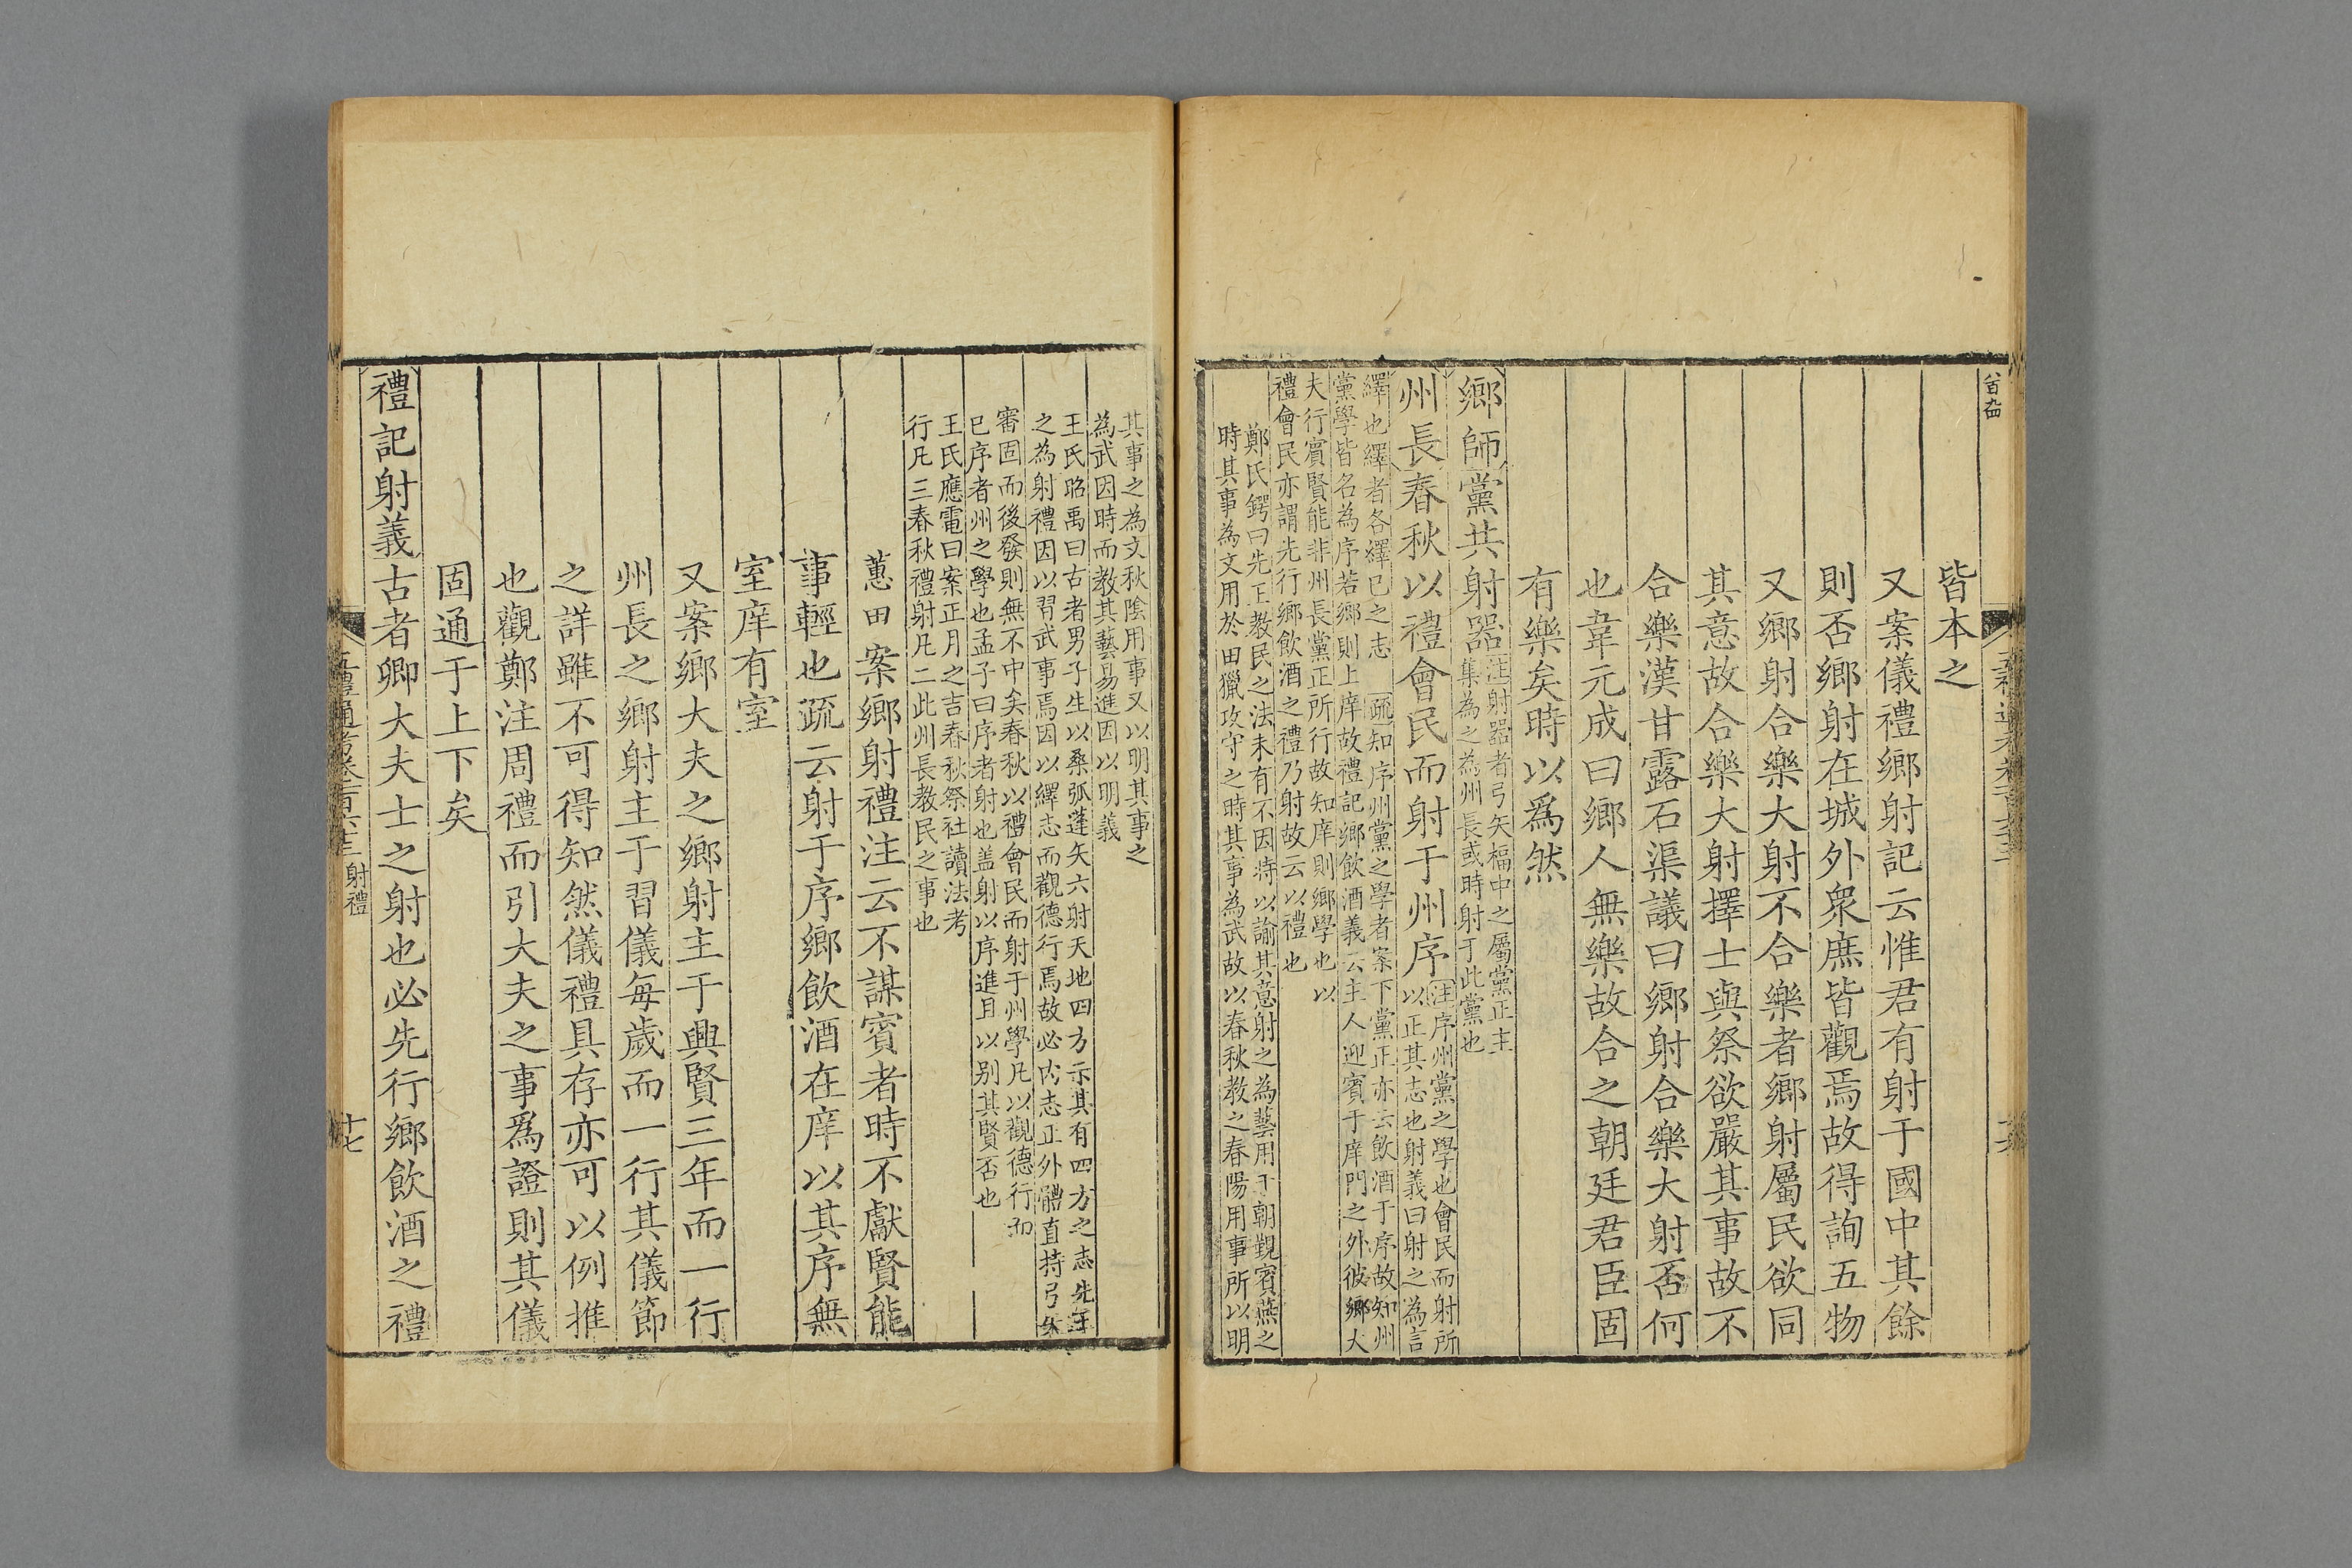 皆本之
又案儀禮鄉射記云惟君有射于國中其餘
則否鄉射在城外衆庶皆觀焉故得詢五物
又鄉射合樂大射不合樂者鄉射屬民欲同
其意故合樂大射擇士與祭欲嚴其事故不
合樂漢甘露石渠議曰鄉射合樂大射否何
也韋元成曰鄉人無樂故合之朝廷君臣固
有樂矣時以爲然
鄉師黨共射器
注射器者弓矢楅中之屬黨正主
集為之為州長或時射于此黨也
州長春秋以禮會民而射于州序
注序州黨之學也會民而射所
以正其志也射義曰射之為言
繹也繹者各繹己之志 疏知序州黨之學者案下黨正亦云飲酒于序故知州
黨學皆名為序若鄉則上庠故禮記鄉飲酒義云主人迎賓于庠門之外彼鄉大
夫行賓賢能非州長黨正所行故知庠則鄉學也以
禮會民亦謂先行鄉飲酒之禮乃射故云以禮也
鄭氏鍔曰先王教民之法未有不因時以諭其意射之為藝用于朝覲賓燕之
時其事為文用於田獵攻守之時其事為武故以春秋教之春陽用事所以明
其事之為文秋陰用事又以明其事之
為武因時而教其藝易進因以明義
王氏昭禹曰古者男子生以桑弧蓬矢六射天地四方示其有四方之志先王
之為射禮因以習武事焉因以繹志而觀德行焉故必内志正外體直持弓矢
審固而後發則無不中矣春秋以禮會民而射于州學凡以觀德行而
已序者州之學也孟子曰序者射也盖射以序進且以别其賢否也
王氏應電曰案正月之吉春秋祭社讀法考
行凡三春秋禮射凡二此州長教民之事也
蕙田案鄉射禮注云不謀賓者時不獻賢能
事輕也疏云射于序鄉飲酒在庠以其序無
室庠有室
又案鄉大夫之鄉射主于興賢三年而一行
州長之鄉射主于習儀每歲而一行其儀節
之詳雖不可得知然儀禮具存亦可以例推
也觀鄭注周禮而引大夫之事爲證則其儀
固通于上下矣
禮記射義古者卿大夫士之射也必先行鄉飲酒之禮
五禮通考卷一百六十三 射禮
十七